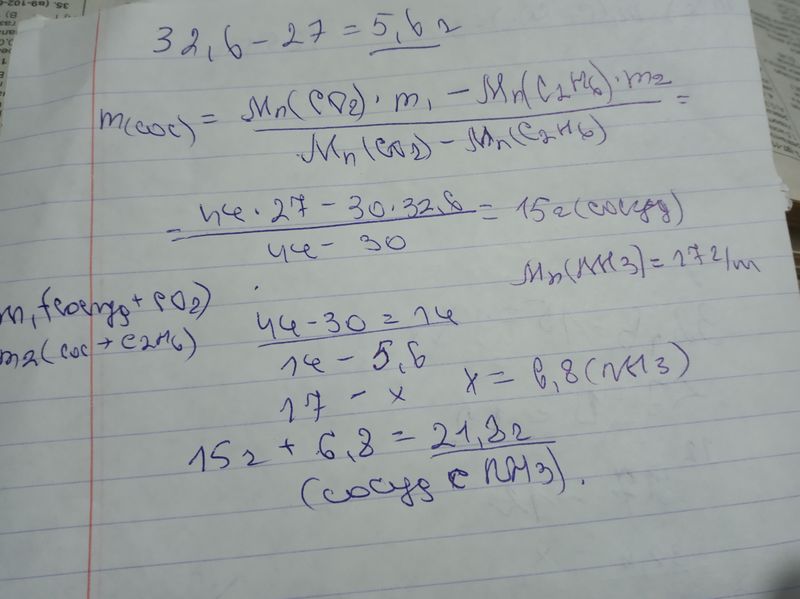 32,6 - 27 = 5,6 г
m(сос) = Mr(CO2) · m1 - Mr(C2H6) · m2 / Mr(CO2) - Mr(C2H6) =
= 44 · 27 - 30 · 32,6 / 44 - 30 = 15г (сосуд)
Mr(NH3) = 17 г/м
m1 (сосуд + CO2)
m2 (сос + C2H6)
44 - 30 = 14
14 - 5,6
17 - x x = 6,8 (NH3)
15г + 6,8 = 21,8г
(сосуд с NH3).